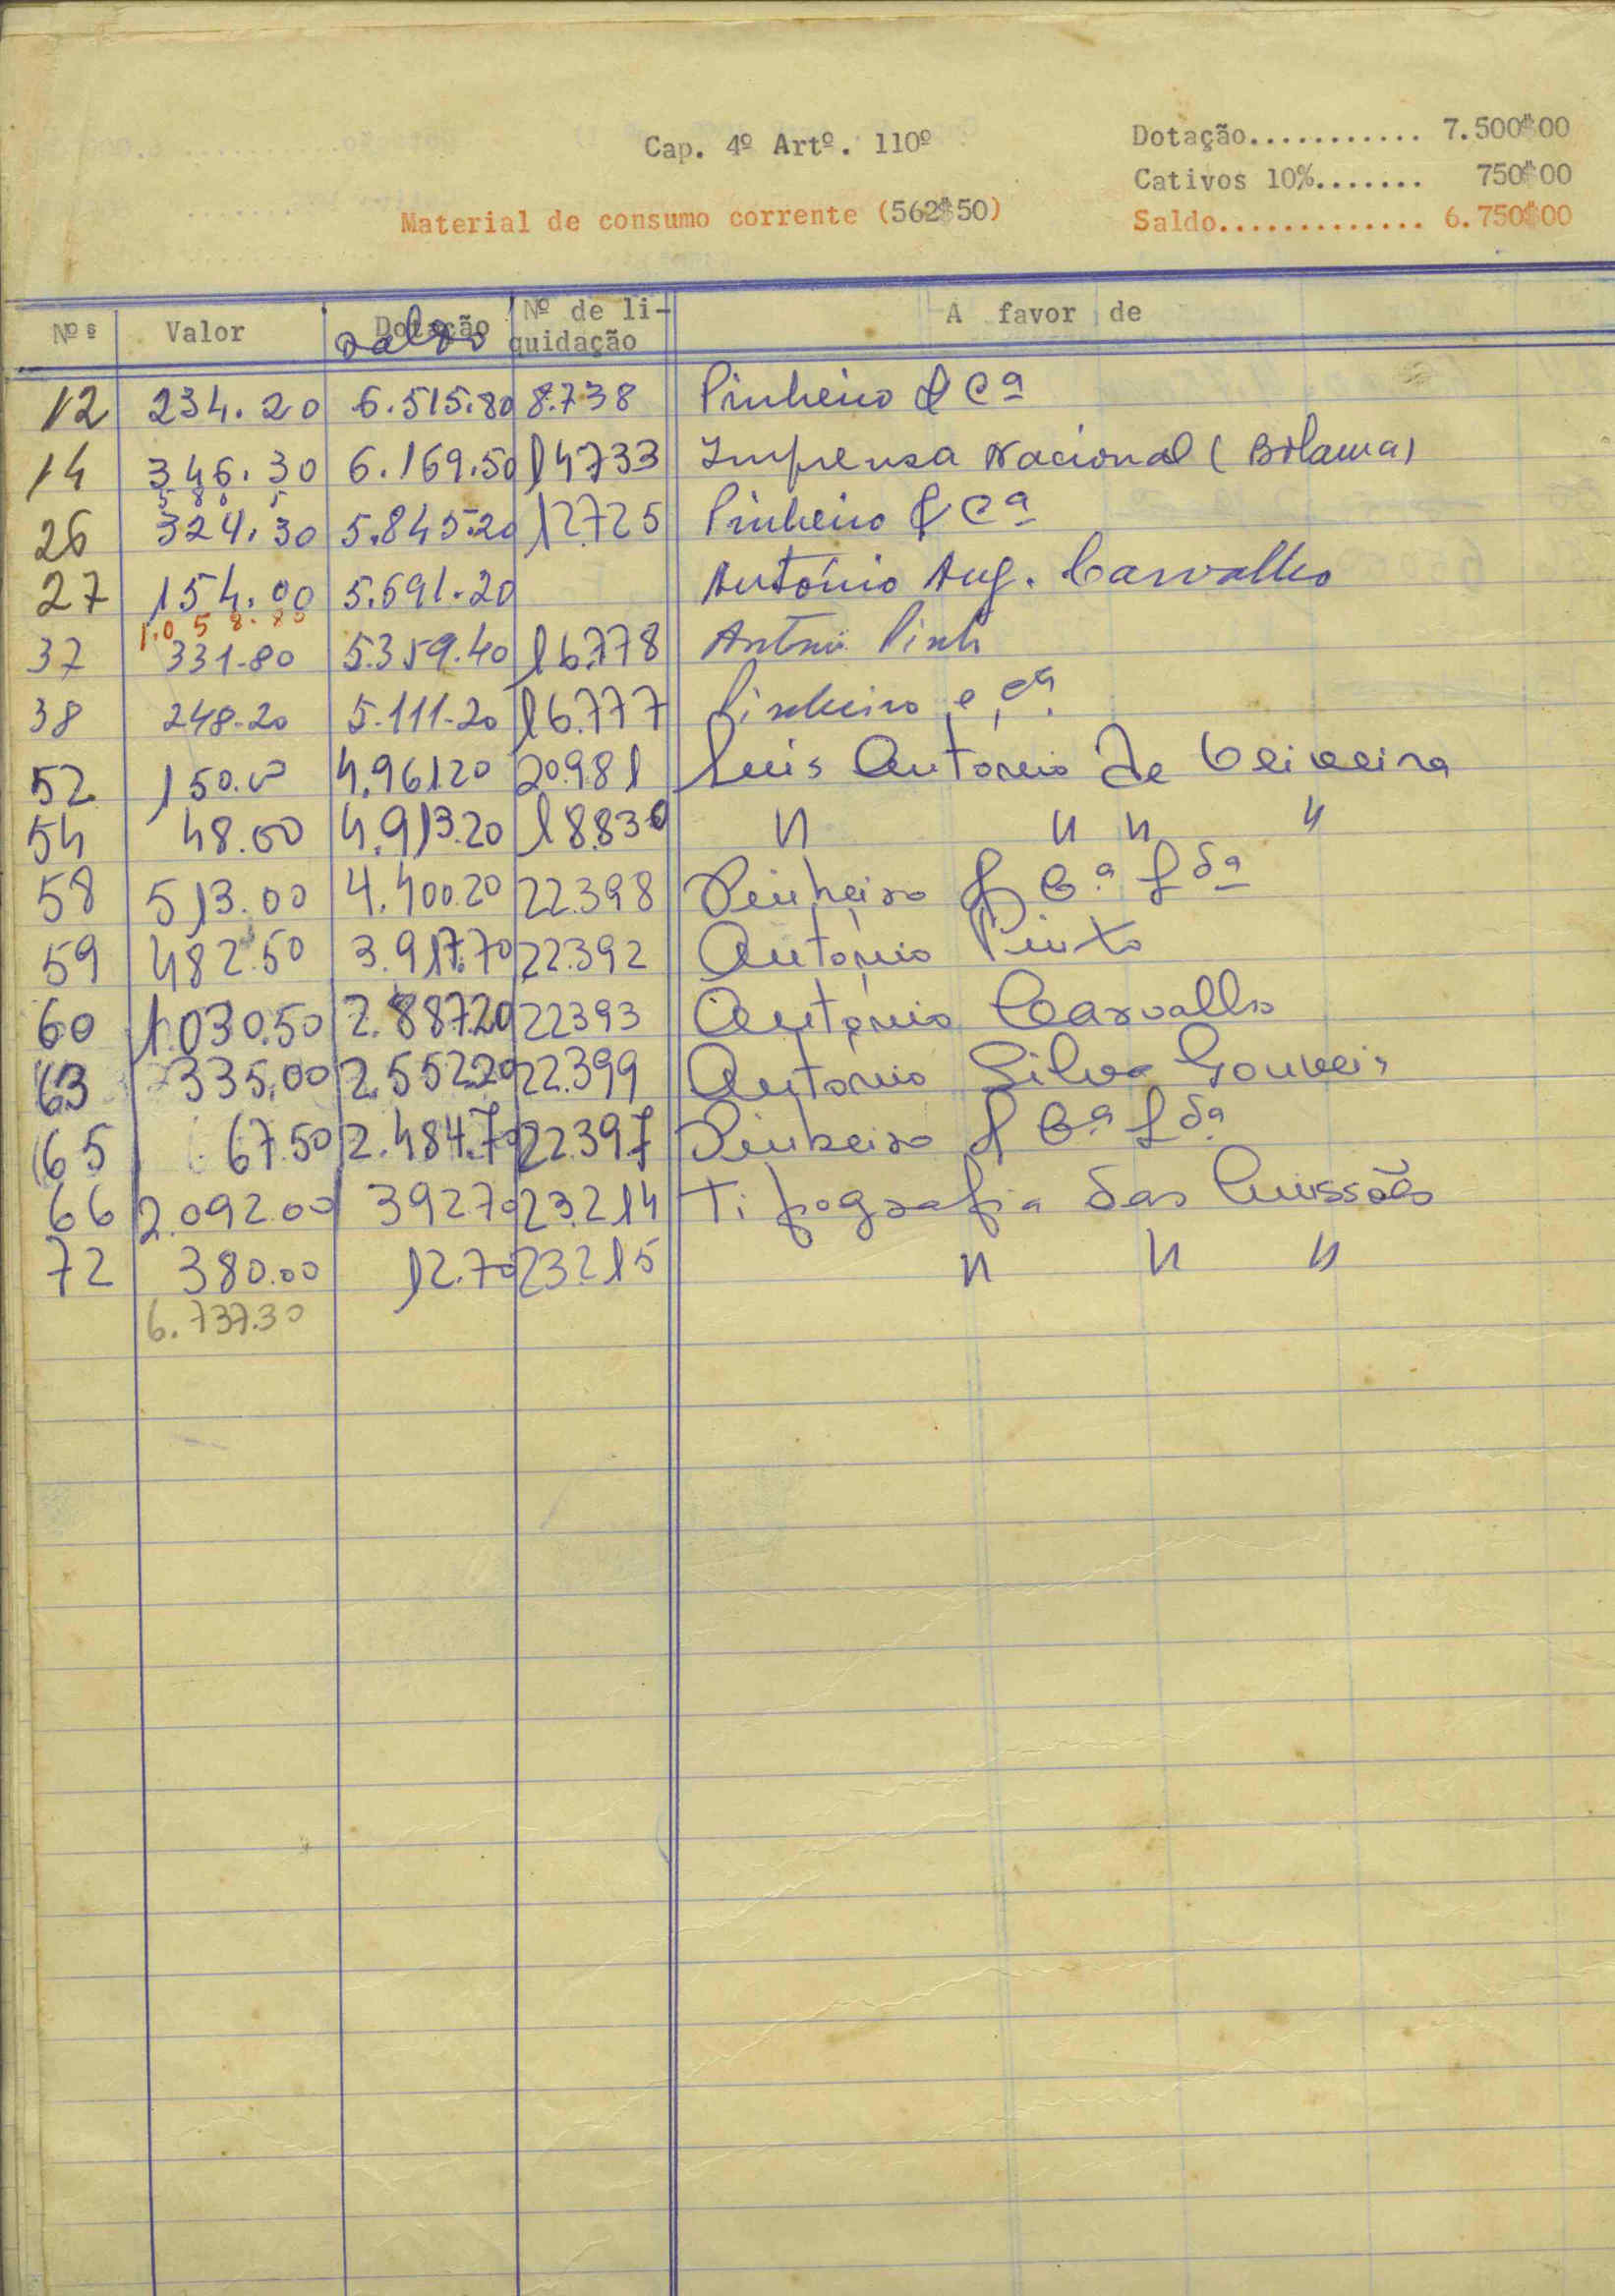 Cap. 4º Artº. 110º
Dotação........... 7.500$00
Cativos 10%....... 750$00
Material de consumo corrente (562$50)
Saldo............. 6.750$00
Nºs Valor Dotação saldo Nº de liquidação A favor de
12 234.20 6.515.80 8.738 Pinheiro & Cª
14 346.30 6.169.50 14733 Imprensa Nacional (Bolama)
580 5
26 324.30 5.845.20 12.725 Pinheiro & Cª
27 154.00 5.691.20 António Aug. Carvalho
1.058.80
37 331.80 5.359.40 16.778 António Pinto
38 248.20 5.111.20 16.777 Pinheiro e Cª.
52 150.00 4.961.20 20.981 Luis Antonio de Oliveira
54 48.00 4.913.20 18.830 " " " "
58 513.00 4.400.20 22.398 Pinheiro & Cª Ldª
59 482.50 3.917.70 22.392 Antonio Pinto
60 1.030.50 2.887.20 22393 Antonio Carvalho
63 335.00 2.552.20 22.399 Antonio Silva Gouveia
65 67.50 2.484.70 22.397 Pinheiro & Cª Ldª
66 2.092.00 392.70 23.214 Tipografia das Missões
72 380.00 12.70 23.215 " " "
6.737.30